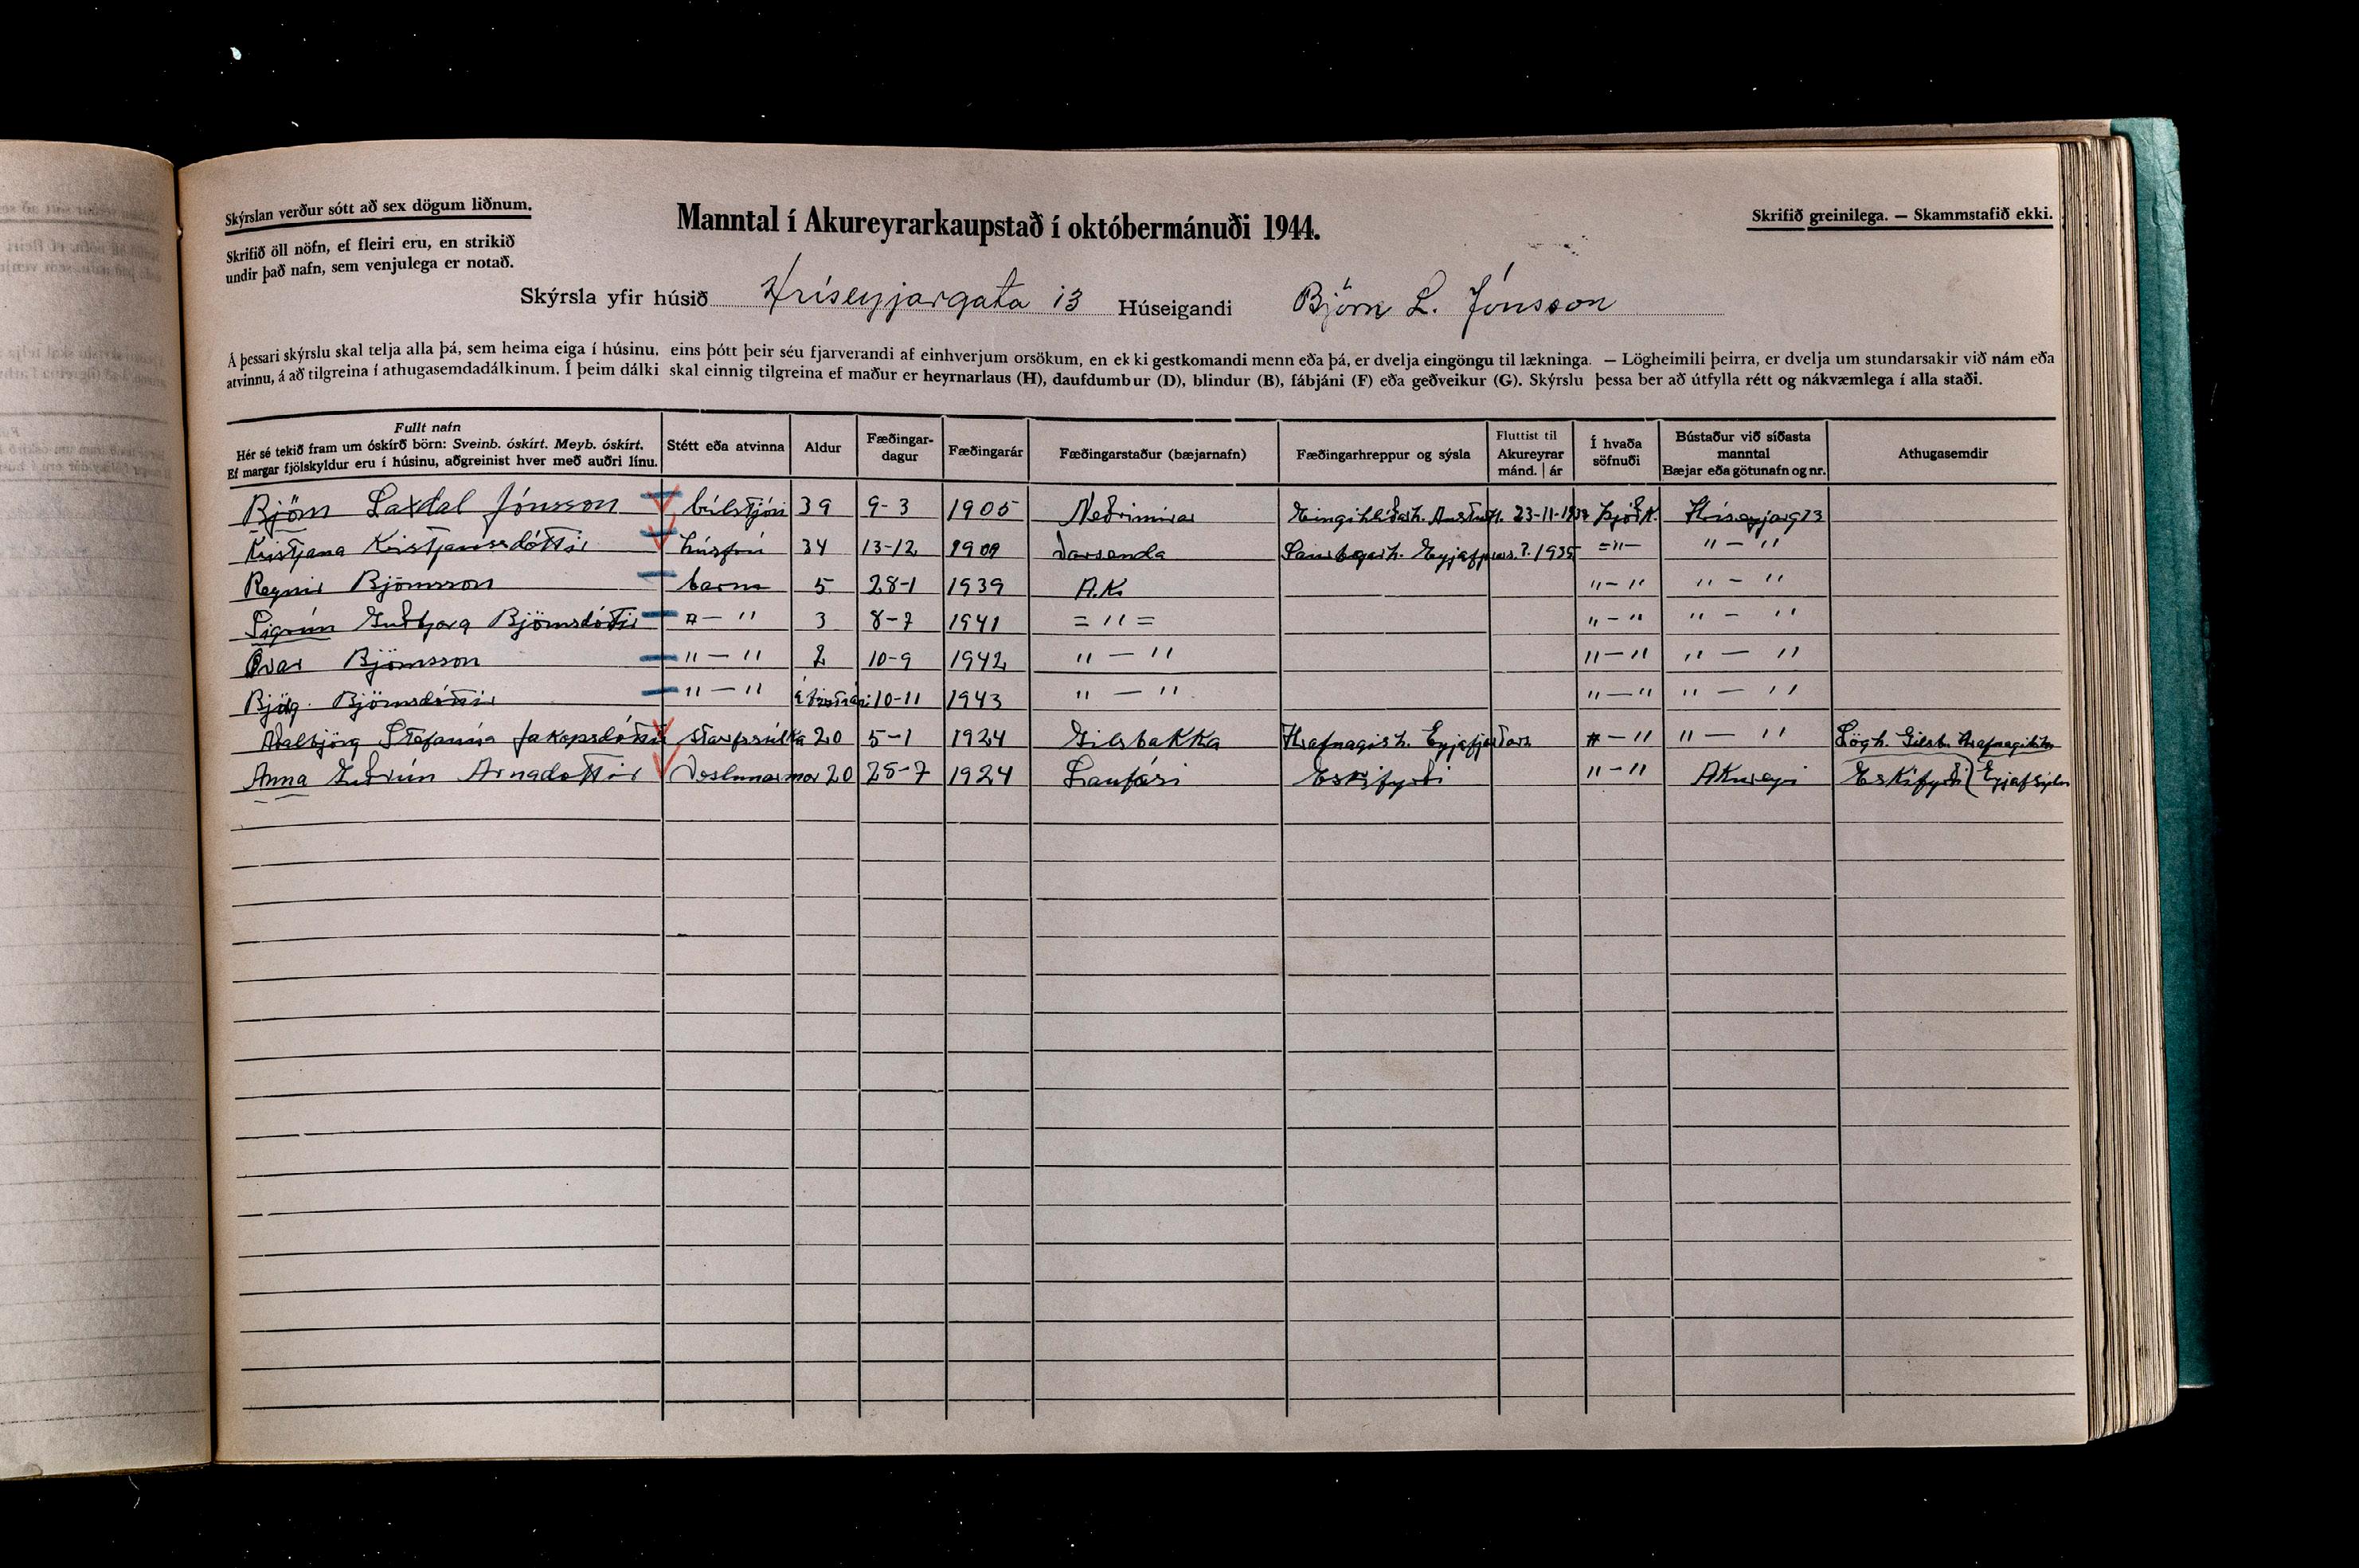 Skýrslan verður sótt að sex dögum liðnum.
Skrifið öll nöfn, ef fleiri eru, en strikið
undir það nafn, sem venjulega er notað.
Manntal í Akureyrarkaupstað í októbermánuði 1944.
Skrifið greinilega. — Skammstafið ekki.
Skýrsla yfir húsið Hríseyjargata 13 Húseigandi Björn L. Jónsson
Á þessari skýrslu skal telja alla þá, sem heima eiga í húsinu, eins þótt þeir séu fjarverandi af einhverjum orsökum, en ekki gestkomandi menn eða þá, er dvelja eingöngu til lækninga. — Lögheimili þeirra, er dvelja um stundarsakir við nám eða
atvinnu, á að tilgreina í athugasemdadálkinum. Í þeim dálki skal einnig tilgreina ef maður er heyrnarlaus (H), daufdumbur (D), blindur (B), fábjáni (F) eða geðveikur (G). Skýrslu þessa ber að útfylla rétt og nákvæmlega í alla staði.
Fullt nafn
Hér sé tekið fram um óskírð börn: Sveinb. óskírt. Meyb. óskírt.
Ef margar fjölskyldur eru í húsinu, aðgreinist hver með auðri línu.
Stétt eða atvinna
Aldur
Fæðingar-
dagur
Fæðingarár
Fæðingarstaður (bæjarnafn)
Fæðingarhreppur og sýsla
Fluttist til
Akureyrar
mánd. | ár
Í hvaða
söfnuði
Bústaður við síðasta
manntal
Bæjar eða götunafn og nr.
Athugasemdir
Björn Laxdal Jónsson bílstjóri 39 9-3 1905 Neðrimírar 23-11- Þjóðk. Híseyjarg 13
Kristjana Kristjánsdóttir húsfrú 34 13-12 1909 1935 =〃— 〃 — 〃
Reynir Björnsson barn 5 28-1 1939 A.K. 〃 — 〃 〃 — 〃
Sigrún Guðbjörg Björnsdóttir 〃 — 〃 3 8-7 1941 = 〃 = 〃 — 〃 〃 — 〃
Övar Björnsson 〃 — 〃 2 10-9 1942 〃 — 〃 〃 — 〃 〃 — 〃
Björg Björnsdóttir 〃 — 〃 10-11 1943 〃 — 〃 〃 — 〃 〃 — 〃
Aðalbjörg Stefanía Jakopsdóttir starfsúlka 20 5-1 1924 Gilsbakka Hrafnagish. Eyjafjarðars 〃 — 〃 〃 — 〃 Lögh. Gilsb.
Anna Guðrún Arnadóttir 20 28-7 1924 Laufási Eskifyrði 〃 — 〃 Akureyri Eskifyrði